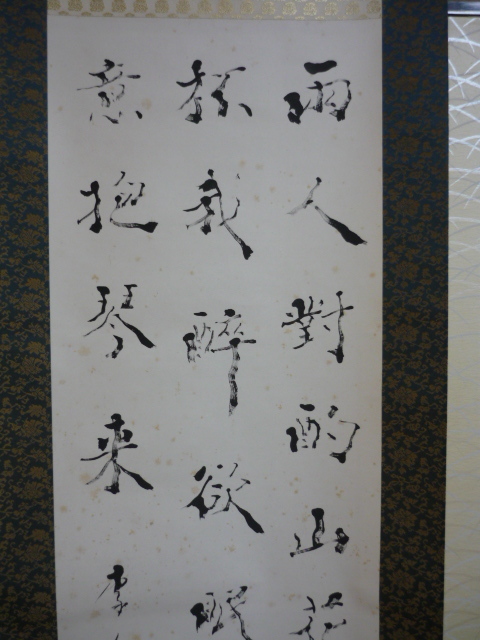 兩人對酌山花
杯我醉欲眠
意抱琴来李